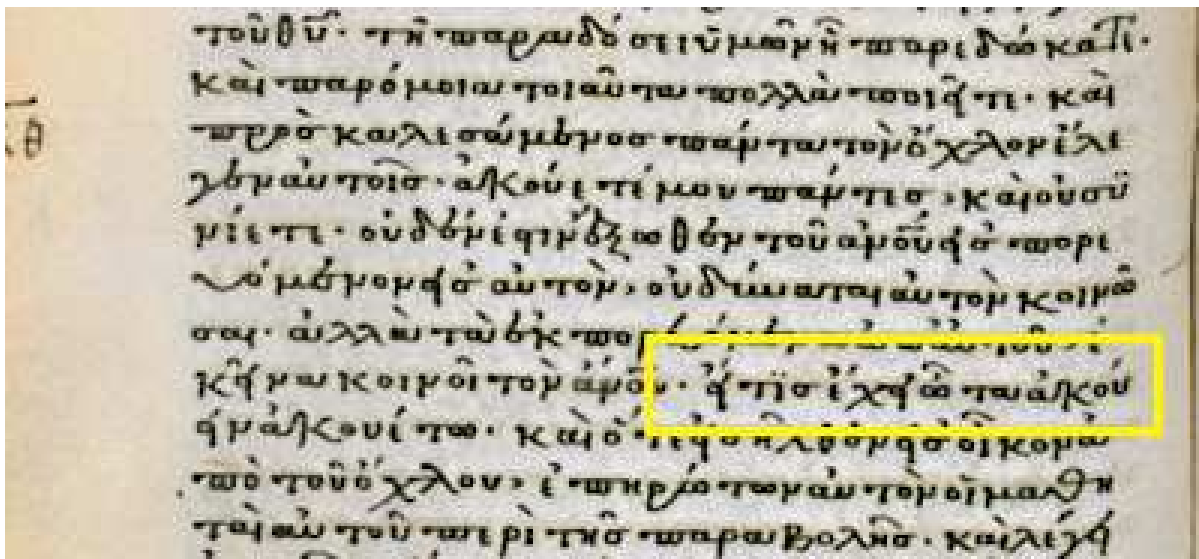 τοῦ θῦ· τῆ παραδόσει ὑμῶν ῆ παρεδώκατε·
καὶ παρόμοια τοιαῦτα πολλὰ ποιεῖτε· καὶ
προσκαλεσάμενοσ πάντα τὸν ὄχλον ἔλε
γεν αὐτοῖσ· ἀκούετέ μου πάντεσ, καὶ συ
νίετε· οὐδέν ἐστιν ἔξωθεν τοῦ ἀνοῦ εἰσπορε
υόμενον εἰσ αὐτὸν, ὃ δύναται αὐτὸν κοινῶ
σαι· ἀλλὰ τὰ ἐκπορ
κεῖνα κοινοῖ τὸν ἀνον· εἴ τϊσ ἔχει ὦτα ἀκού
ειν ἀκουέτω· καὶ ὅτε εἰσῆλθεν εἰσ οἶκον ἀ
πὸ τοῦ ὄχλου, ἐπηρώτων αὐτὸν οἱ μαθη
ταὶ αὐτοῦ περὶ τῆσ παραβολῆσ· καὶ λέγει
θ